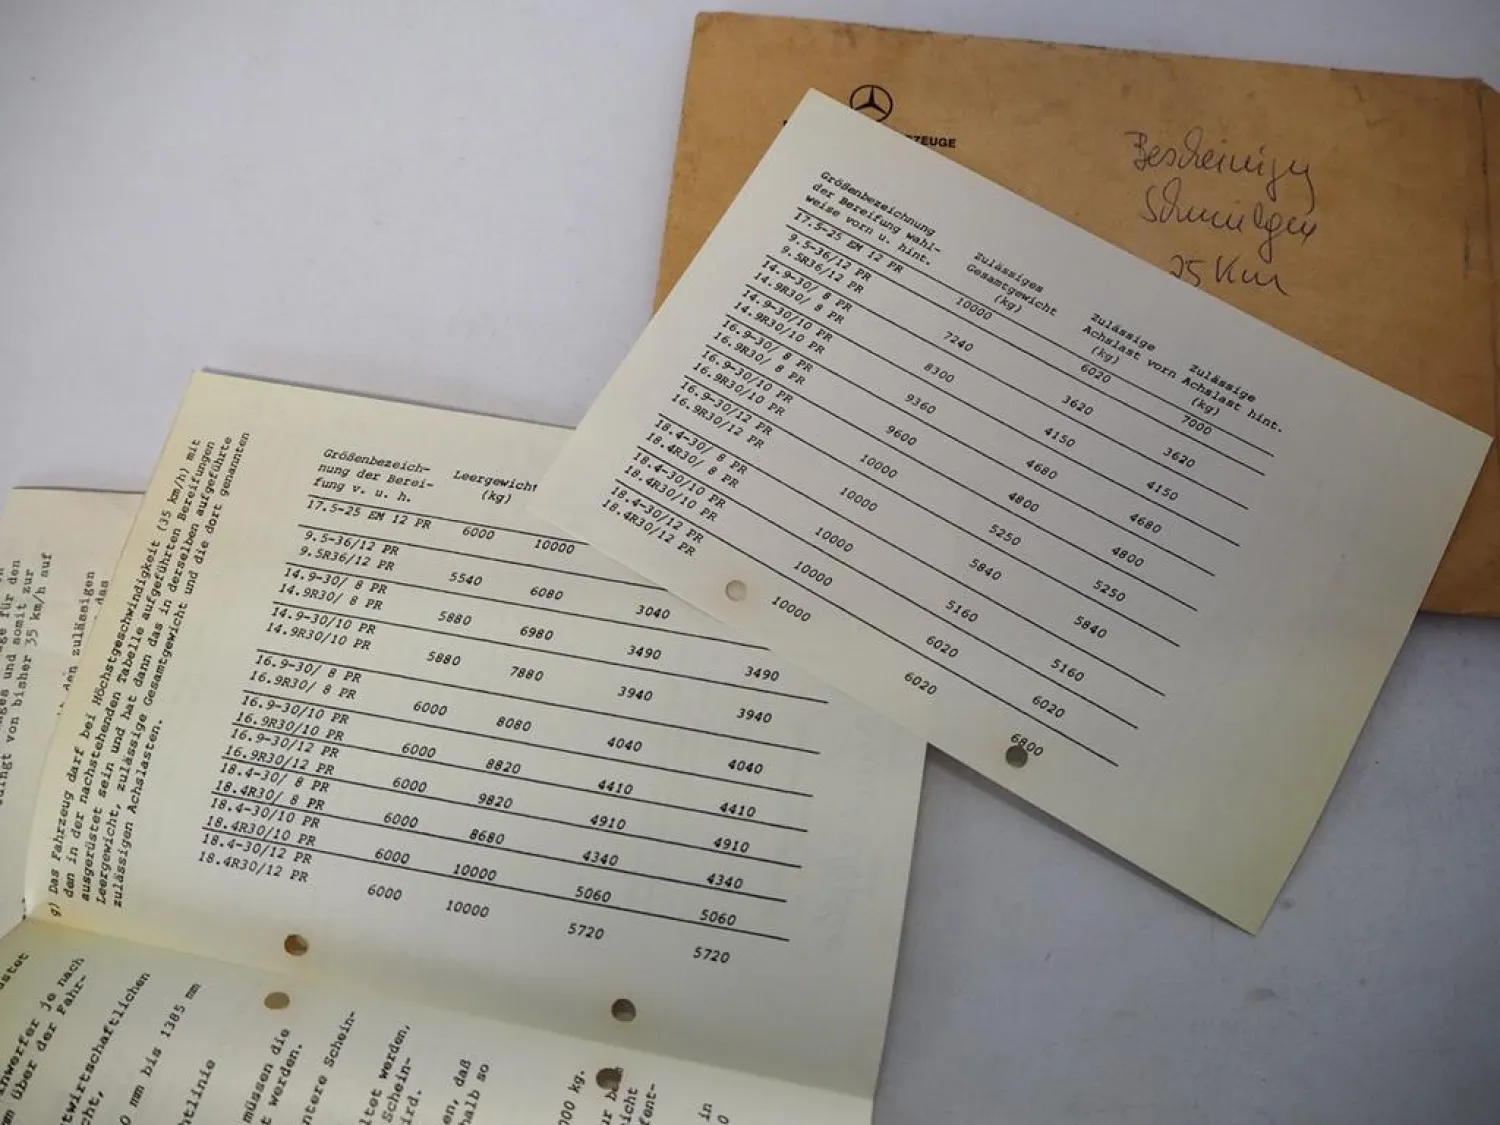 ZEUGE
25 Km
Größenbezeichnung
der Bereifung wahl-
weise vorn u. hint.
Zulässiges
Gesamtgewicht
(kg)
Zulässige
Achslast vorn
(kg)
Zulässige
Achslast hint.
(kg)
17.5-25 EM 12 PR 10000 6020 7000
9.5-36/12 PR
9.5R36/12 PR 7240 3620 3620
14.9-30/ 8 PR
14.9R30/ 8 PR 8300 4150 4150
14.9-30/10 PR
14.9R30/10 PR 9360 4680 4680
16.9-30/ 8 PR
16.9R30/ 8 PR 9600 4800 4800
16.9-30/10 PR
16.9R30/10 PR 10000 5250 5250
16.9-30/12 PR
16.9R30/12 PR 10000 5840 5840
18.4-30/ 8 PR
18.4R30/ 8 PR 10000 5160 5160
18.4-30/10 PR
18.4R30/10 PR 10000 6020 6020
18.4-30/12 PR
18.4R30/12 PR 10000 6020 6800
g) Das Fahrzeug darf bei Höchstgeschwindigkeit (35 km/h) mit
den in der nachstehenden Tabelle aufgeführten Bereifungen
ausgerüstet sein und hat dann das in derselben aufgeführte
Leergewicht, zulässige Gesamtgewicht und die dort genannten
zulässigen Achslasten.
Größenbezeich-
nung der Berei-
fung v. u. h.
Leergewicht
(kg)
17.5-25 EM 12 PR 6000 10000
9.5-36/12 PR
9.5R36/12 PR 5540 6080 3040
14.9-30/ 8 PR
14.9R30/ 8 PR 5880 6980 3490 3490
14.9-30/10 PR
14.9R30/10 PR 5880 7880 3940 3940
16.9-30/ 8 PR
16.9R30/ 8 PR 6000 8080 4040 4040
16.9-30/10 PR
16.9R30/10 PR 6000 8820 4410 4410
16.9-30/12 PR
16.9R30/12 PR 6000 9820 4910 4910
18.4-30/ 8 PR
18.4R30/ 8 PR 6000 8680 4340 4340
18.4-30/10 PR
18.4R30/10 PR 6000 10000 5060 5060
18.4-30/12 PR
18.4R30/12 PR 6000 10000 5720 5720
für den
und somit zur
dingt von bisher 35 km/h auf
zulässigen
das
nwerfer je nach
über der Fahr-
twirtschaftlichen
cht,
0 mm bis 1385 mm
htlinie
müssen die
t werden.
ntere Schein-
ltet werden,
Schein-
ird.
en, daß
halb so
000 kg.
icht
fent-
in
0